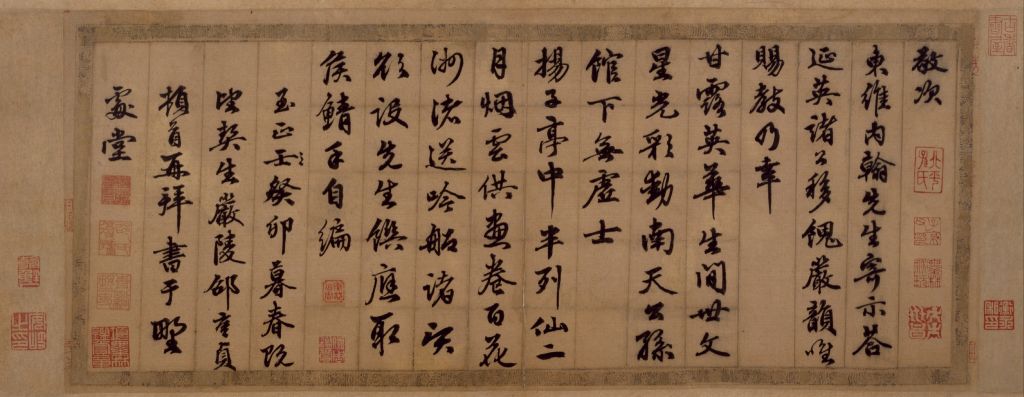 敬次
東維內翰先生寄示答
延英諸公移餽嚴韻唯
賜教乃幸
甘露英華生間世文
星光彩動南天公孫
館下無虛士
揚子亭中半列仙二
月烟雲供畫卷百花
洲渚送吟船諸賓
欲設先生饌應取
侯鯖手自編
至正壬癸卯暮春既
望契生嚴陵邵亨貞
頓首再拜書于野
處堂